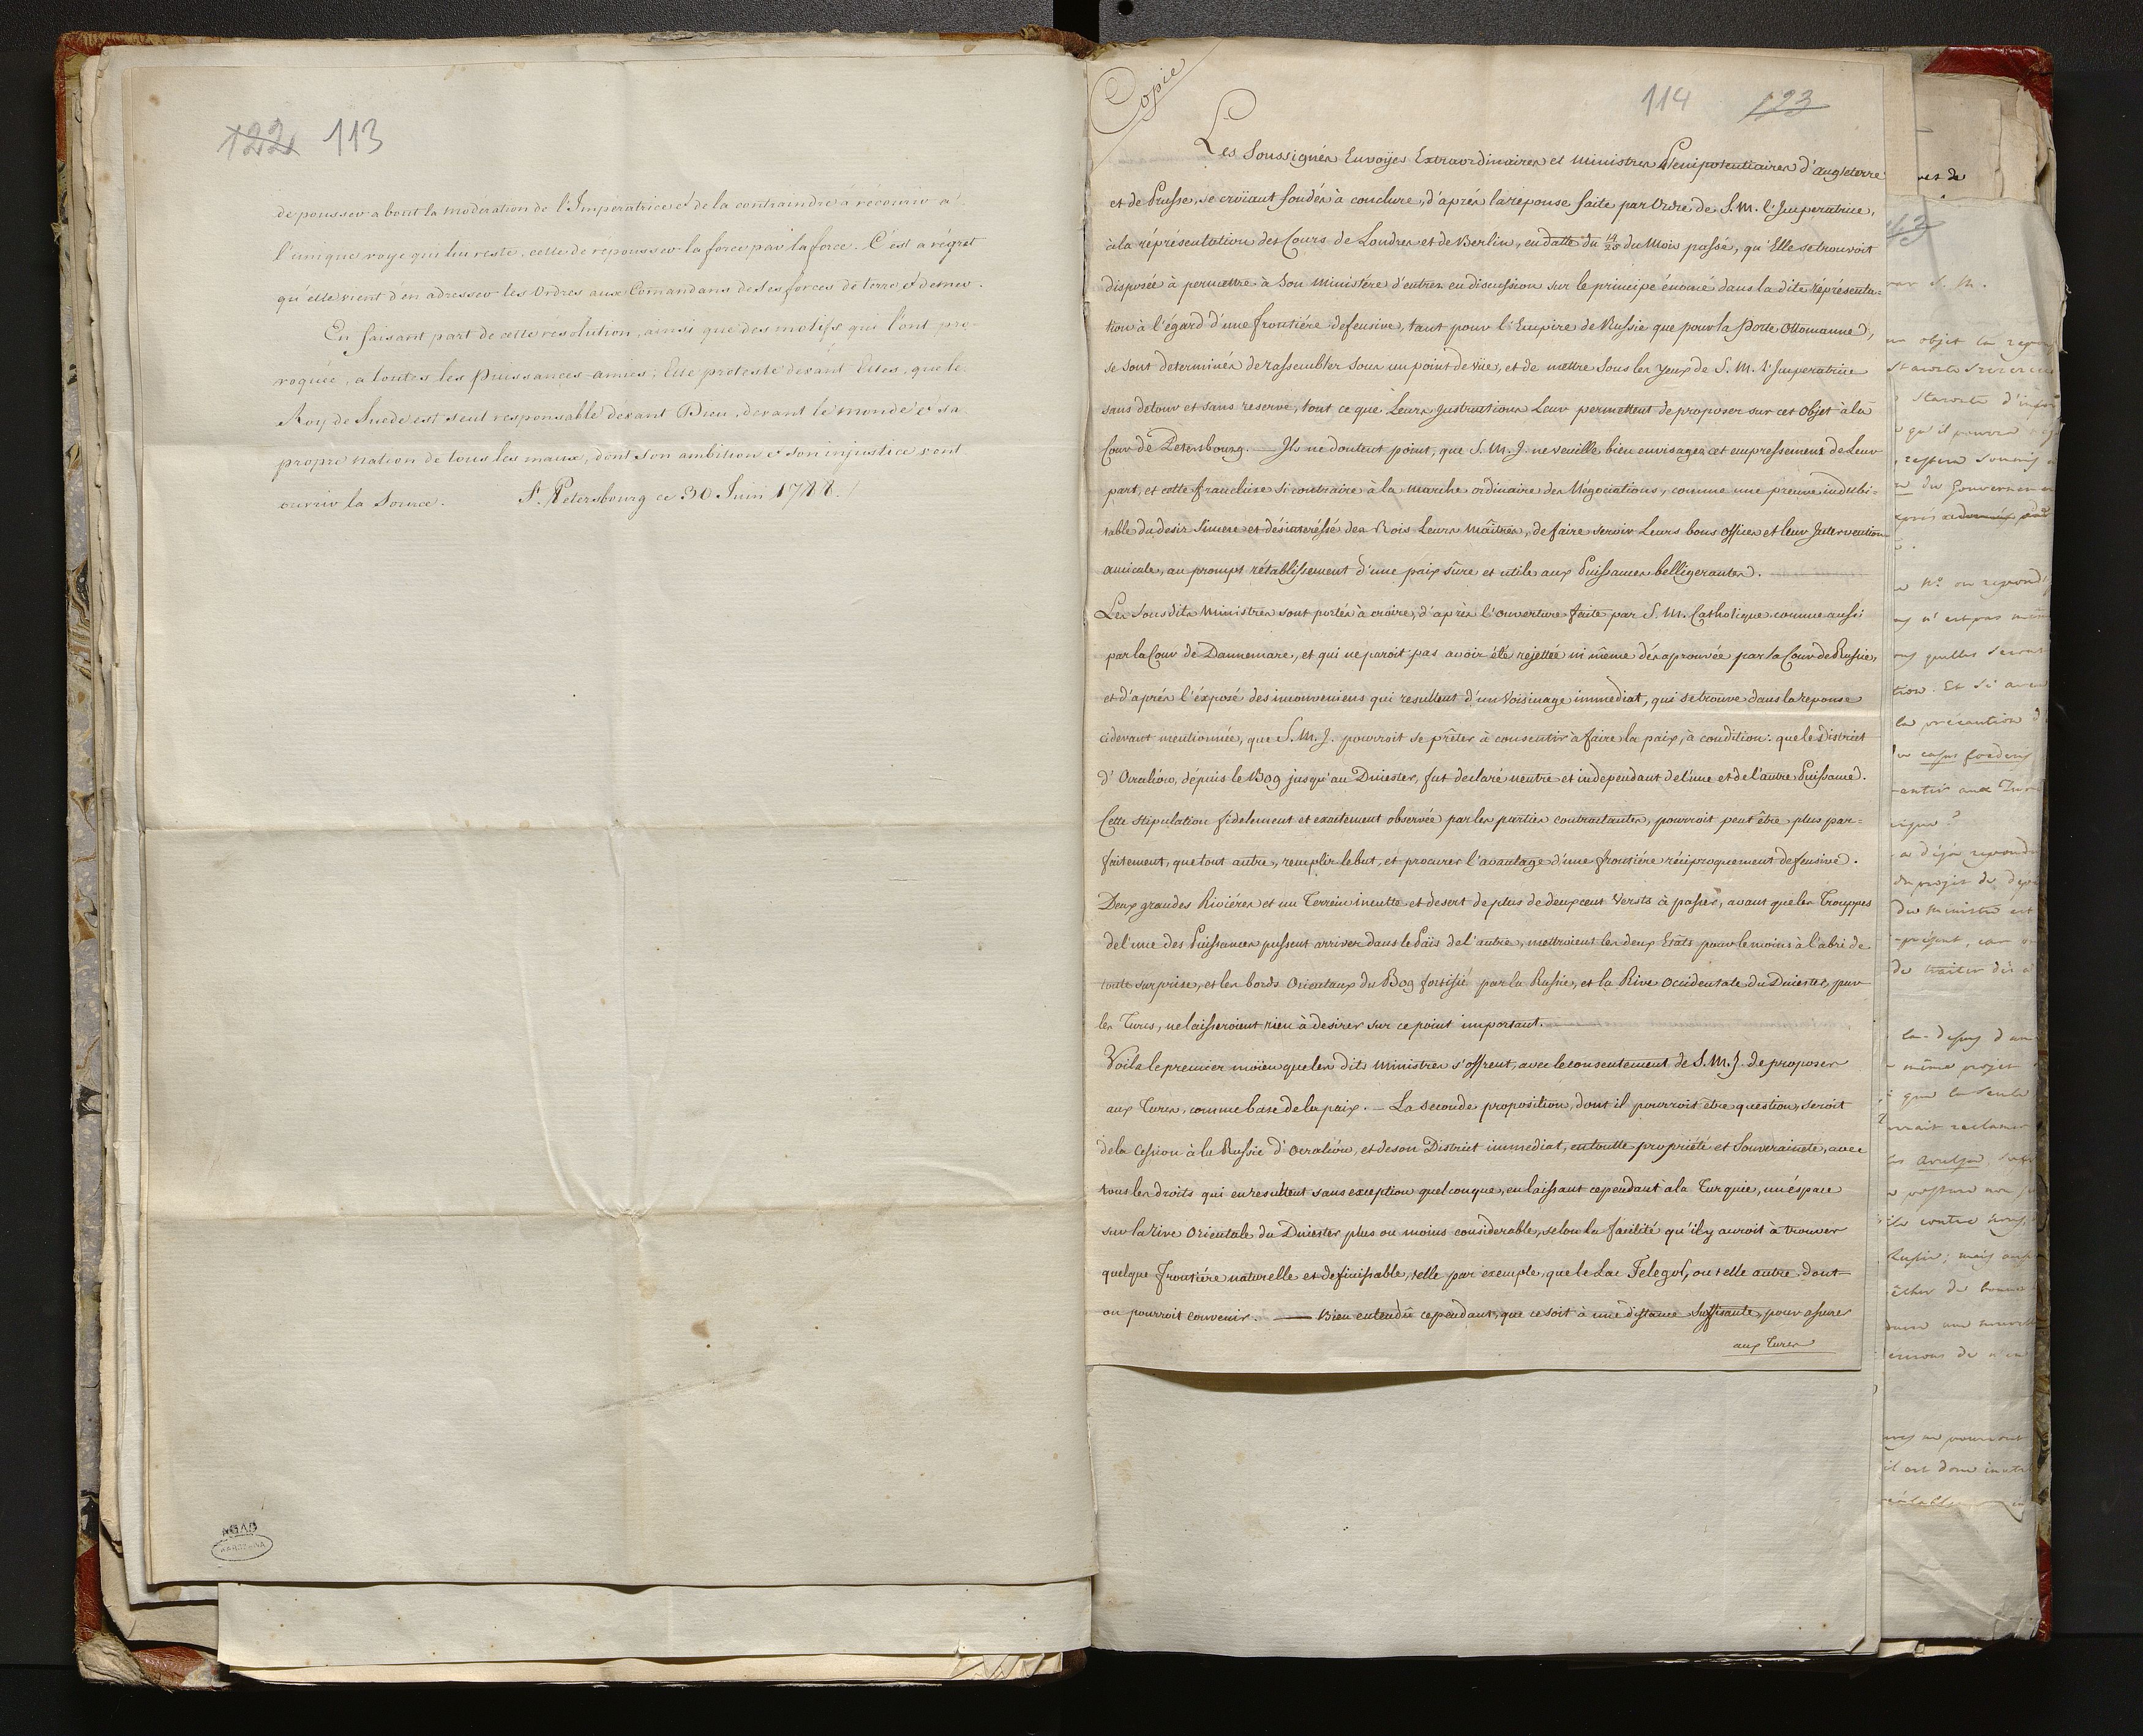 122 113
de pousser a bout la moderation de l'Imperatrice & de la contraindre à recourir a
l'unique voye qui lui reste, celle de repousser la force par la force. C'est a régret
qu'elle vient d'en adresser les Ordres aux Comandans de ses forces de terre & de mer.
En faisant part de cette resolution, ainsi que des motifs qui l'ont pro-
voquée, a toutes les Puissances amies; Elle proteste devant Elles, que le
Roy de Suede est seul responsable devant Dieu, devant le monde & sa
propre nation de tous les maux, dont son ambition & son injustice vont
ouvrir la Source. St. Petersbourg ce 30 Juin 1788.
Copie
114 123
Les Soussignés Envoÿes Extraordinaires et Ministres Plenipotentiaires d'Angleterre
et de Prusse, se croïant fondés à conclure, d'après la reponse faite par Ordre de S. M. l'Imperatrice,
à la réprésentation des Cours de Londres et de Berlin, en datte du 14/25 du Mois passé, qu'Elle se trouvoit
disposée à permettre à Son Ministére d'entrer en discussion sur le principe énoncé dans la dite réprésenta-
tion à l'égard d'une frontiére defensive, tant pour l'Empire de Russie que pour la Porte Ottomanne,
se sont determinés de rassembler sous un point de vüe, et de mettre sous les yeux de S. M. l'Imperatrice
sans detour et sans reserve, tout ce que Leurs Instructions Leur permettent de proposer sur cet Objet à la
Cour de Petersbourg. Ils ne doutent point, que S. M. I. ne veuille bien envisager cet empressement de Leur
part, et cette franchise si contraire à la marche ordinaire des Négociations, comme une preuve indubi-
table du desir sincere et désinteréssé des Rois Leurs Maîtres, de faire servir Leurs bons Offices et leur Intervention
amicale, au prompt rétablissement d'une paix sûre et utile aux Puissances belligerantes.
Les Sousdits Ministres sont portés à croire, d'après l'ouverture faite par S. M. Catholique comme aussi
par la Cour de Dannemarc, et qui ne paroit pas avoir été rejettée ni même désaprouvée par la Cour de Russie,
et d'après l'éxposé des inconveniens qui resultent d'un Voisinage immediat, qui se trouve dans la reponse
cidevant mentionnée, que S. M. I. pourroit se prêter à consentir à faire la paix, à condition: que le District
d'Oczakow, dépuis le Bog jusqu'au Dniester, fut declaré neutre et independant de l'une et de l'autre Puissance.
Cette stipulation fidelement et exactement observée par les parties contractantes, pourroit peut être plus par-
faitement, que tout autre, remplir le but, et procurer l'avantage d'une frontiére réciproquement defensive.
Deux grandes Riviéres et un Terrein inculte et desert de plus de deux cent Versts à passer, avant que les Trouppes
de l'une des Puissances pussent arriver dans le Païs de l'autre, mettroient les deux Etâts pour le moins à l'abri de
toute surprise, et les bords Orientaux du Bog fortifié par la Russie, et la Rive Occidentale du Dniester par
les Turcs, ne laisseroient rien à desirer sur ce point important.
Voila le premier moïen que les dits Ministres s'offrent, avec le consentement de S. M. I. de proposer
aux Turcs, comme base de la paix. La seconde proposition, dont il pourroit être question, seroit
de la Cession à la Russie d'Oczakow, et de son District immediat, en toutte propriété et Souveraineté, avec
tous les droits qui en resultent sans exception quelconque, en laissant cependant à la Turquie, un éspace
sur la rive Orientale du Dniester plus ou moins considerable, selon la facilité qu'il y auroit à trouver
quelque frontiére naturelle et definissable, telle par exemple, que le Lac Telegol, ou telle autre dont
on pourroit convenir. Bien entendû cependant, que ce soit à une distance suffisante, pour assurer
aux Turcs